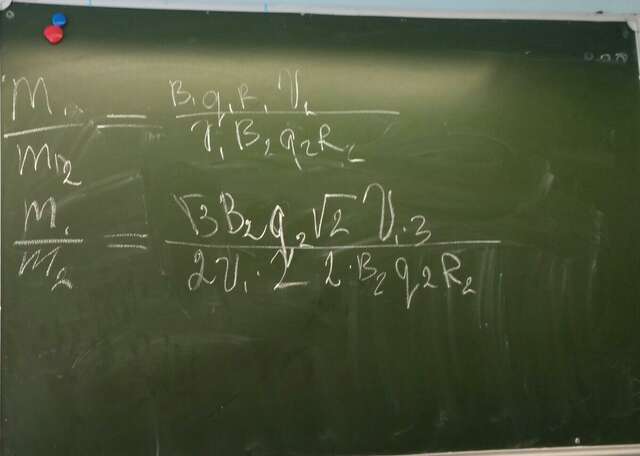 m₁ / m₂ = B₁q₁R₁V₁ / V₁B₂q₂R₂
m₁ / m₂ = √3B₂q₂√2V₁·3 / 2V₁·2 2·B₂q₂R₂